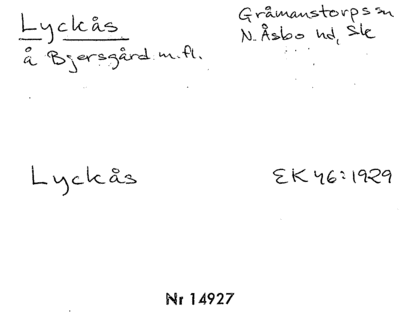 Lyckås
Gråmanstorps sn
å Bjersgård m.fl.
N. Åsbo hd, Sk
Lyckås
EK 46:1929
Nr 14927